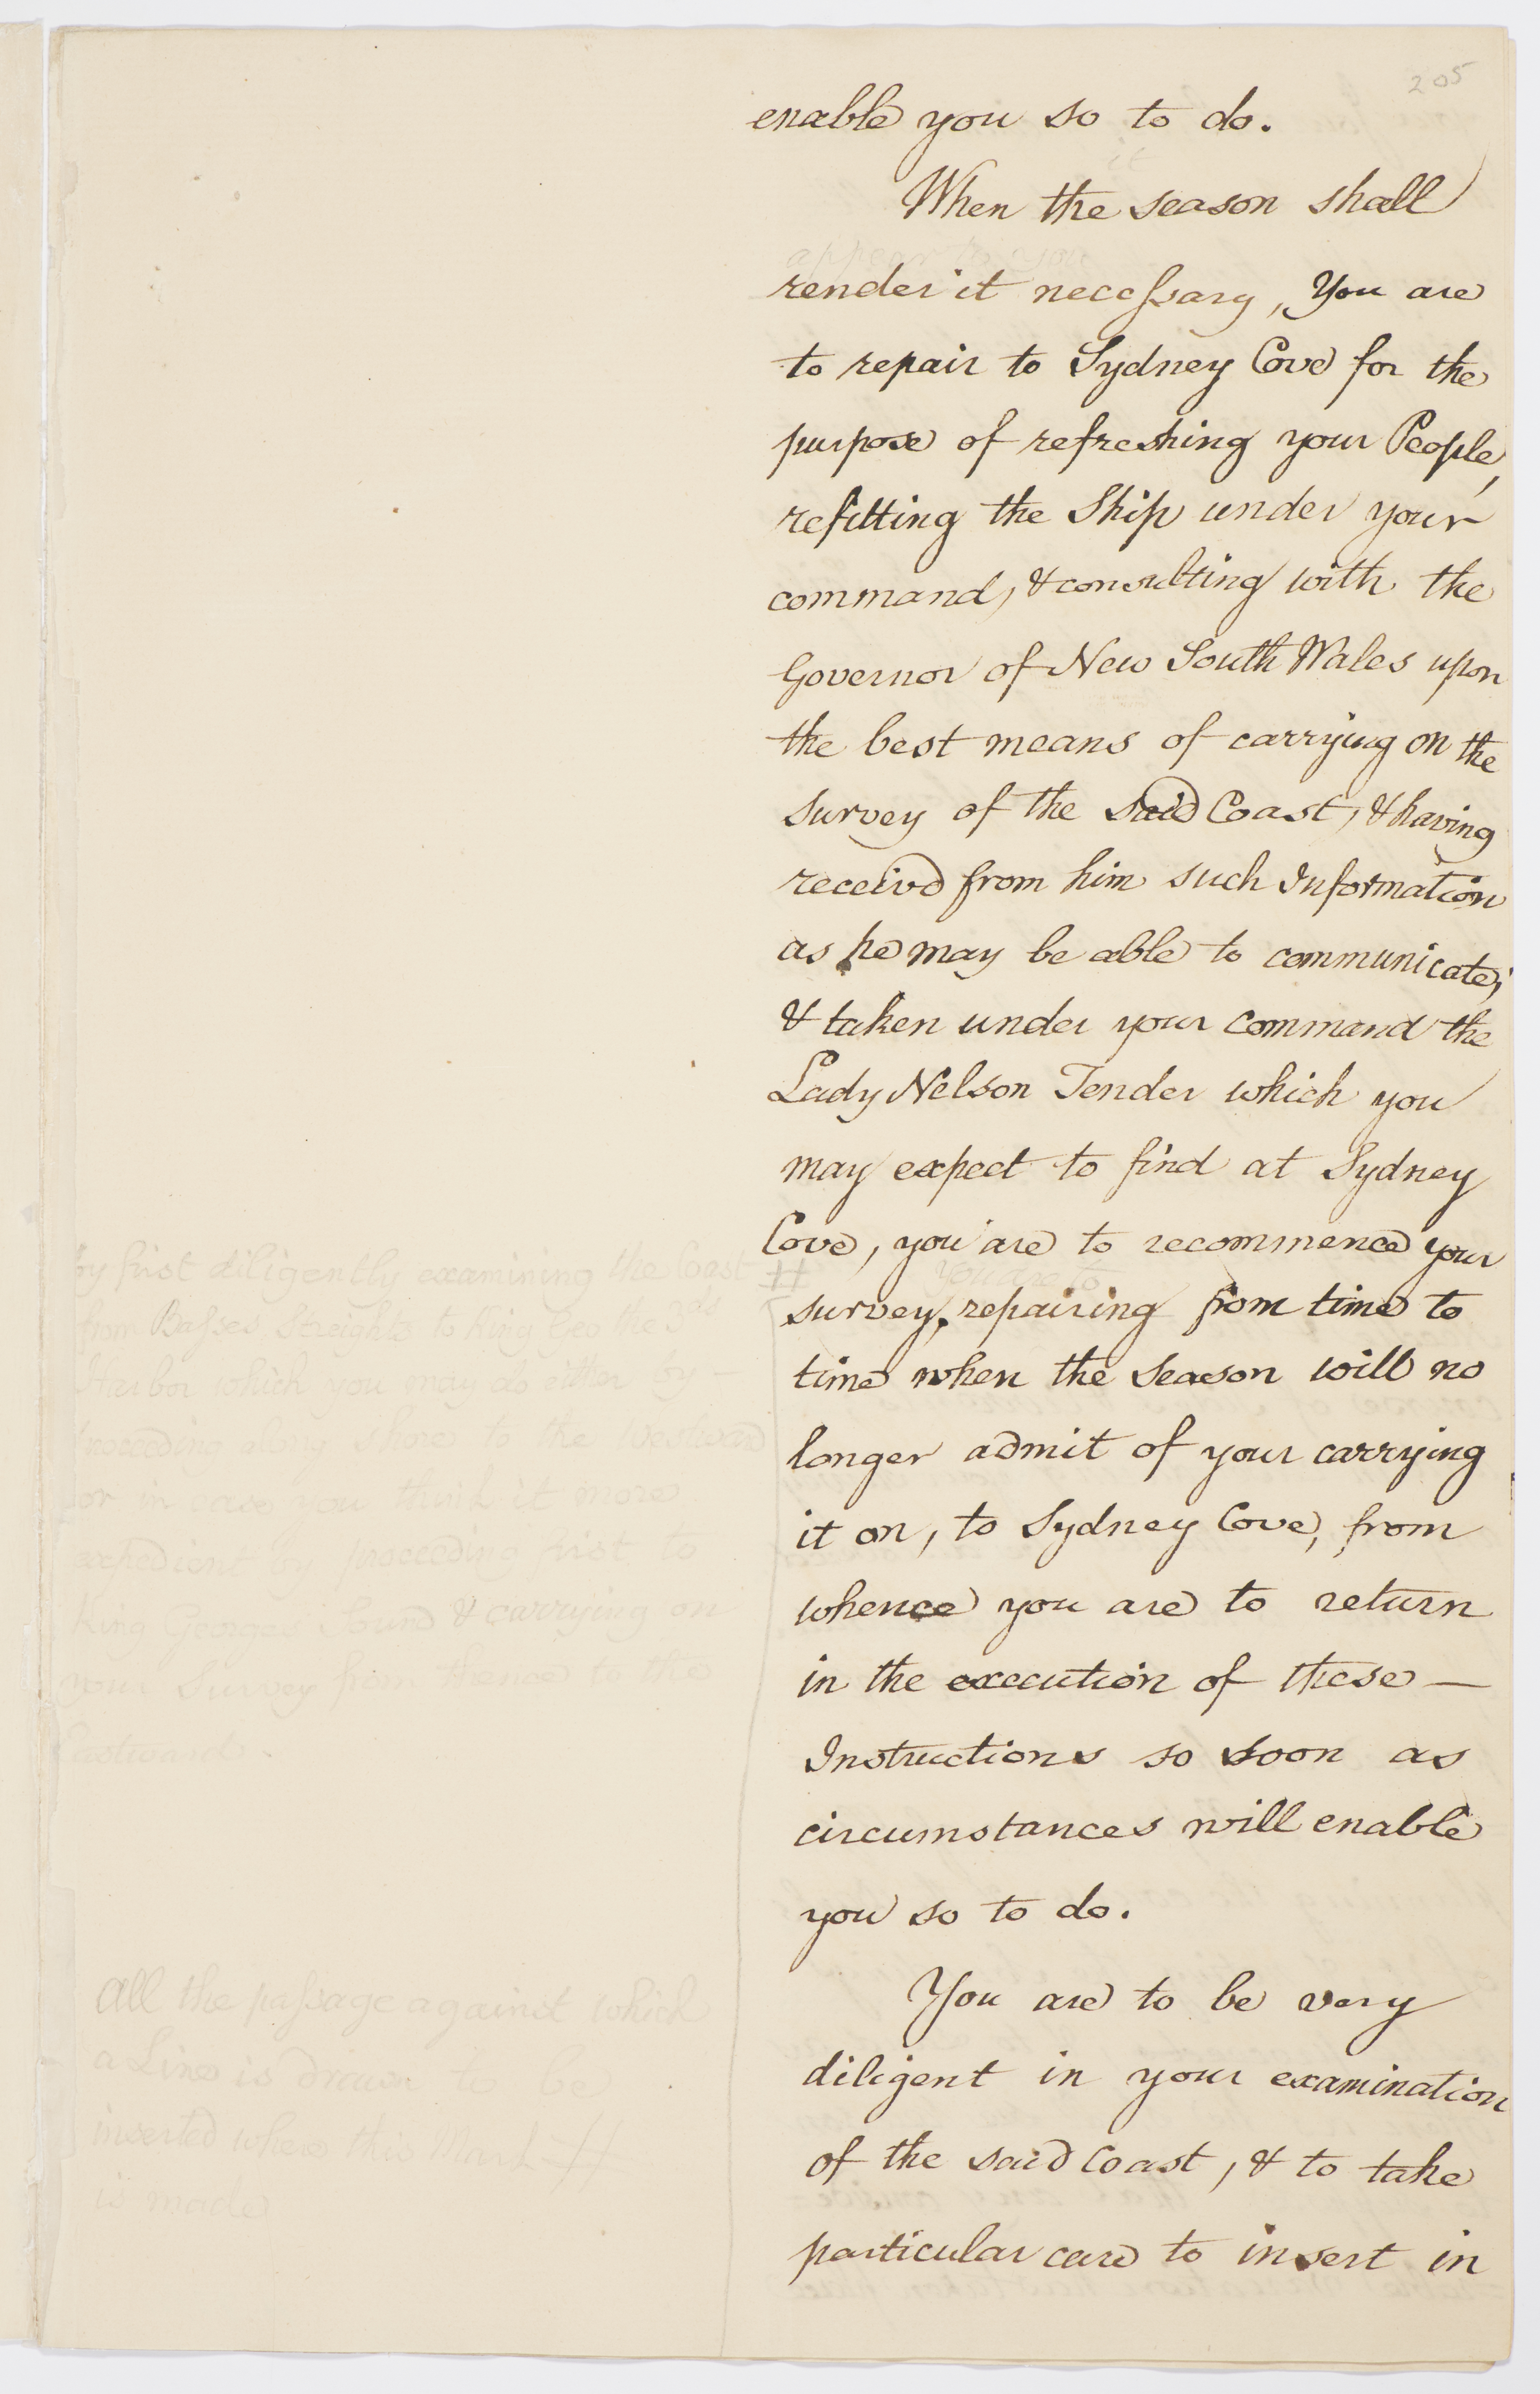 205
enable you so to do.
it
When the season shall
appear to you
render it necessary, You are
to repair to Sydney Cove for the
purpose of refreshing your People,
refitting the Ship under your
command, & consulting with the
Governor of New South Wales upon
the best means of carrying on the
survey of the said Coast, & having
receivd from him such Information
as he may be able to communicate,
& taken under your command the
Lady Nelson Tender which you
may expect to find at Sydney
Cove, you are to recommence your
you are to
survey, repairing from time to
time when the season will no
longer admit of your carrying
it on, to Sydney Cove, from
whence you are to return
in the execution of these —
Instructions so soon as
circumstances will enable
you so to do.
You are to be very
diligent in your examination
of the said Coast, & to take
particular care to insert in
by first diligently examining the Coast
from Basses Streights to King George the 3d
Harbor which you may do either
proceeding along shore to the Westward
or in case you think it more
proceeding first to
King Georges Sound & carrying on
your Survey from thence to the
Eastward.
All the passage against which
a Line is drawn to be
inserted where this Mark #
is made